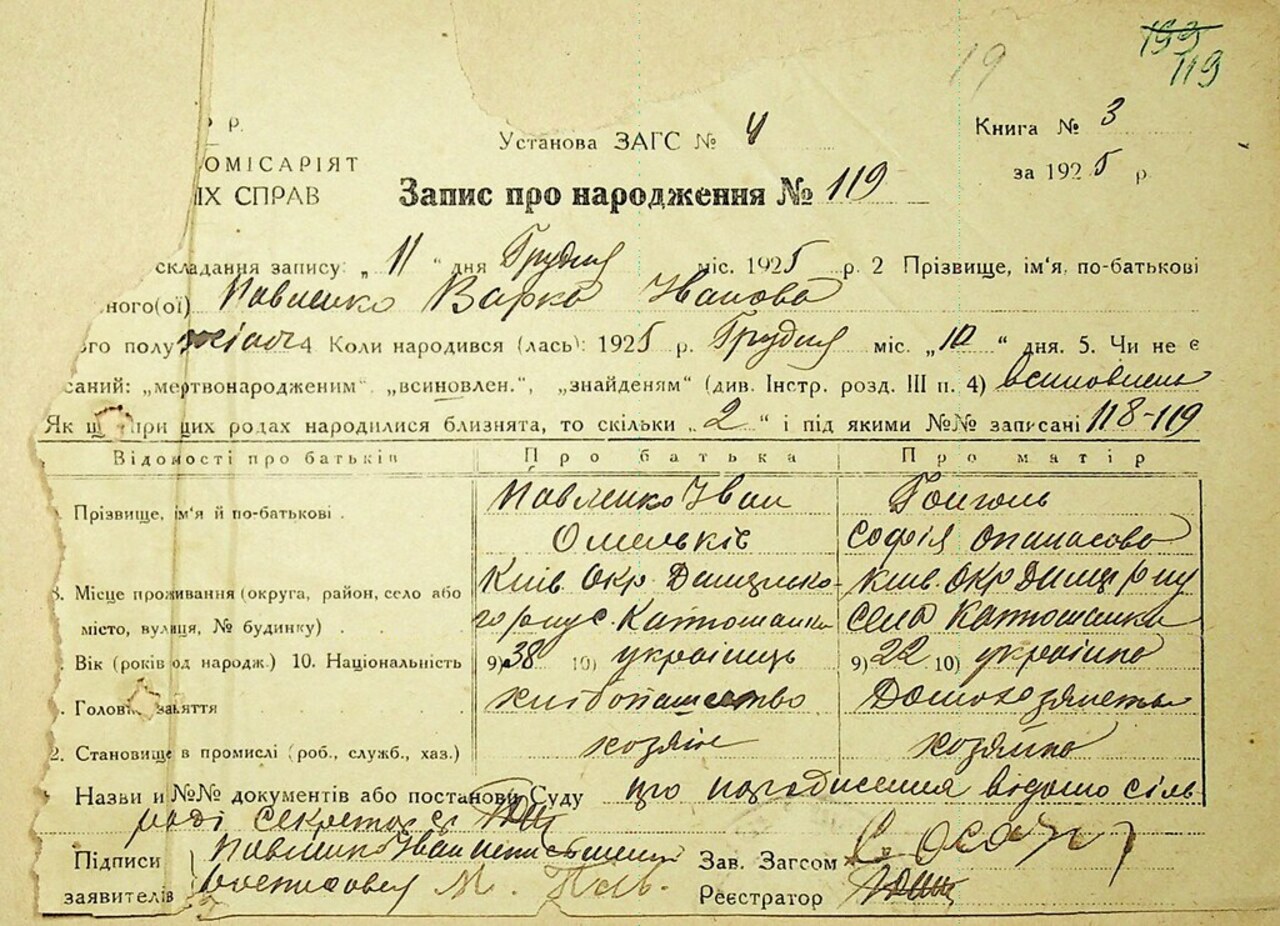 19
193
119
р.
Установа ЗАГС № 4
Книга № 3
ОМІСАРІЯТ
за 1925 р.
ІХ СПРАВ
Запис про народження № 119
складання запису: „ 11 “ дня Грудня міс. 1925 р. 2 Прізвище, ім'я, по-батькові
ного(ої) Павленко Варка Іванова
го полу жіноч 4 Коли народився (лась): 1925 р. Грудня міс. „10“ дня. 5. Чи не є
саний: „мертвонародженим“, „всиновлен.“, „знайденям“ (див. Інстр. розд. III п. 4)
Як при цих родах народилися близнята, то скільки „ 2 “ і під якими №№ записані 118-119
Відомості про батьків Про батька Про матір
Прізвище, ім'я й по-батькові Павленко Іван
Омельків Софія Опанасова
8. Місце проживання (округа, район, село або Київ. Окр. Київ. Окр
місто, вулиця, № будинку) с. Катюшанка село Катюшанка
Вік (років од народж.) 10. Національність 9) 38 10) українець 9) 22 10) українка
Головне заняття хлібопашество Домохозяйства
2. Становище в промислі (роб., служб., хаз.) хозяін хозяйка
Назви и №№ документів або постанови Суду про народження відомо сіль
раді секретар
Підписи Павленко Іван
заявителів М. Пав.
Зав. Загсом
Реєстратор